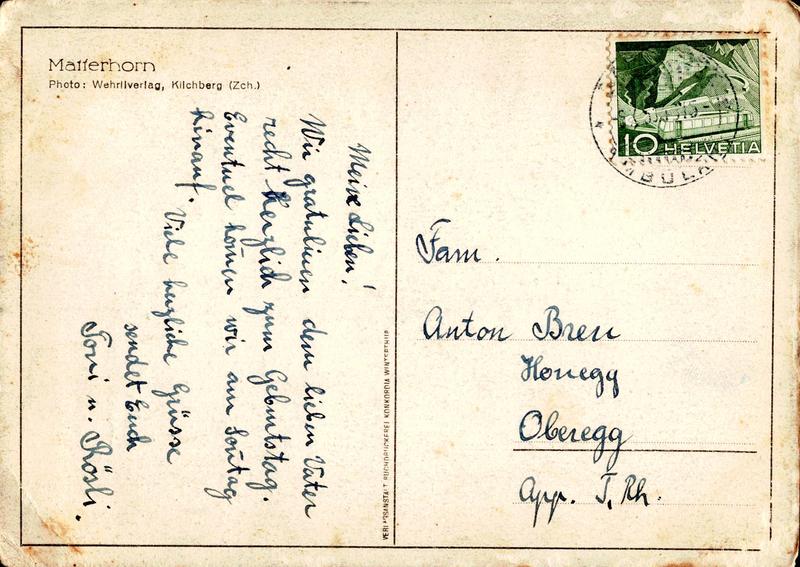 Matterhorn
Photo: Wehrliverlag, Kilchberg (Zch.)
Meine Lieben!
Wir gratulieren dem lieben Vater
recht herzlich zum Geburtstag.
Eventuel kommen wir am Sontag
hinauf. Viele herzliche Grüsse
sendet Euch
Toni u. Rösli.
VERLAGSANSTALT BUCHDRUCKEREI KONKORDIA WINTERTHUR
10 HELVETIA
AMBULANT
Fam.
Anton Breu
Honegg
Oberegg
App. I. Rh.